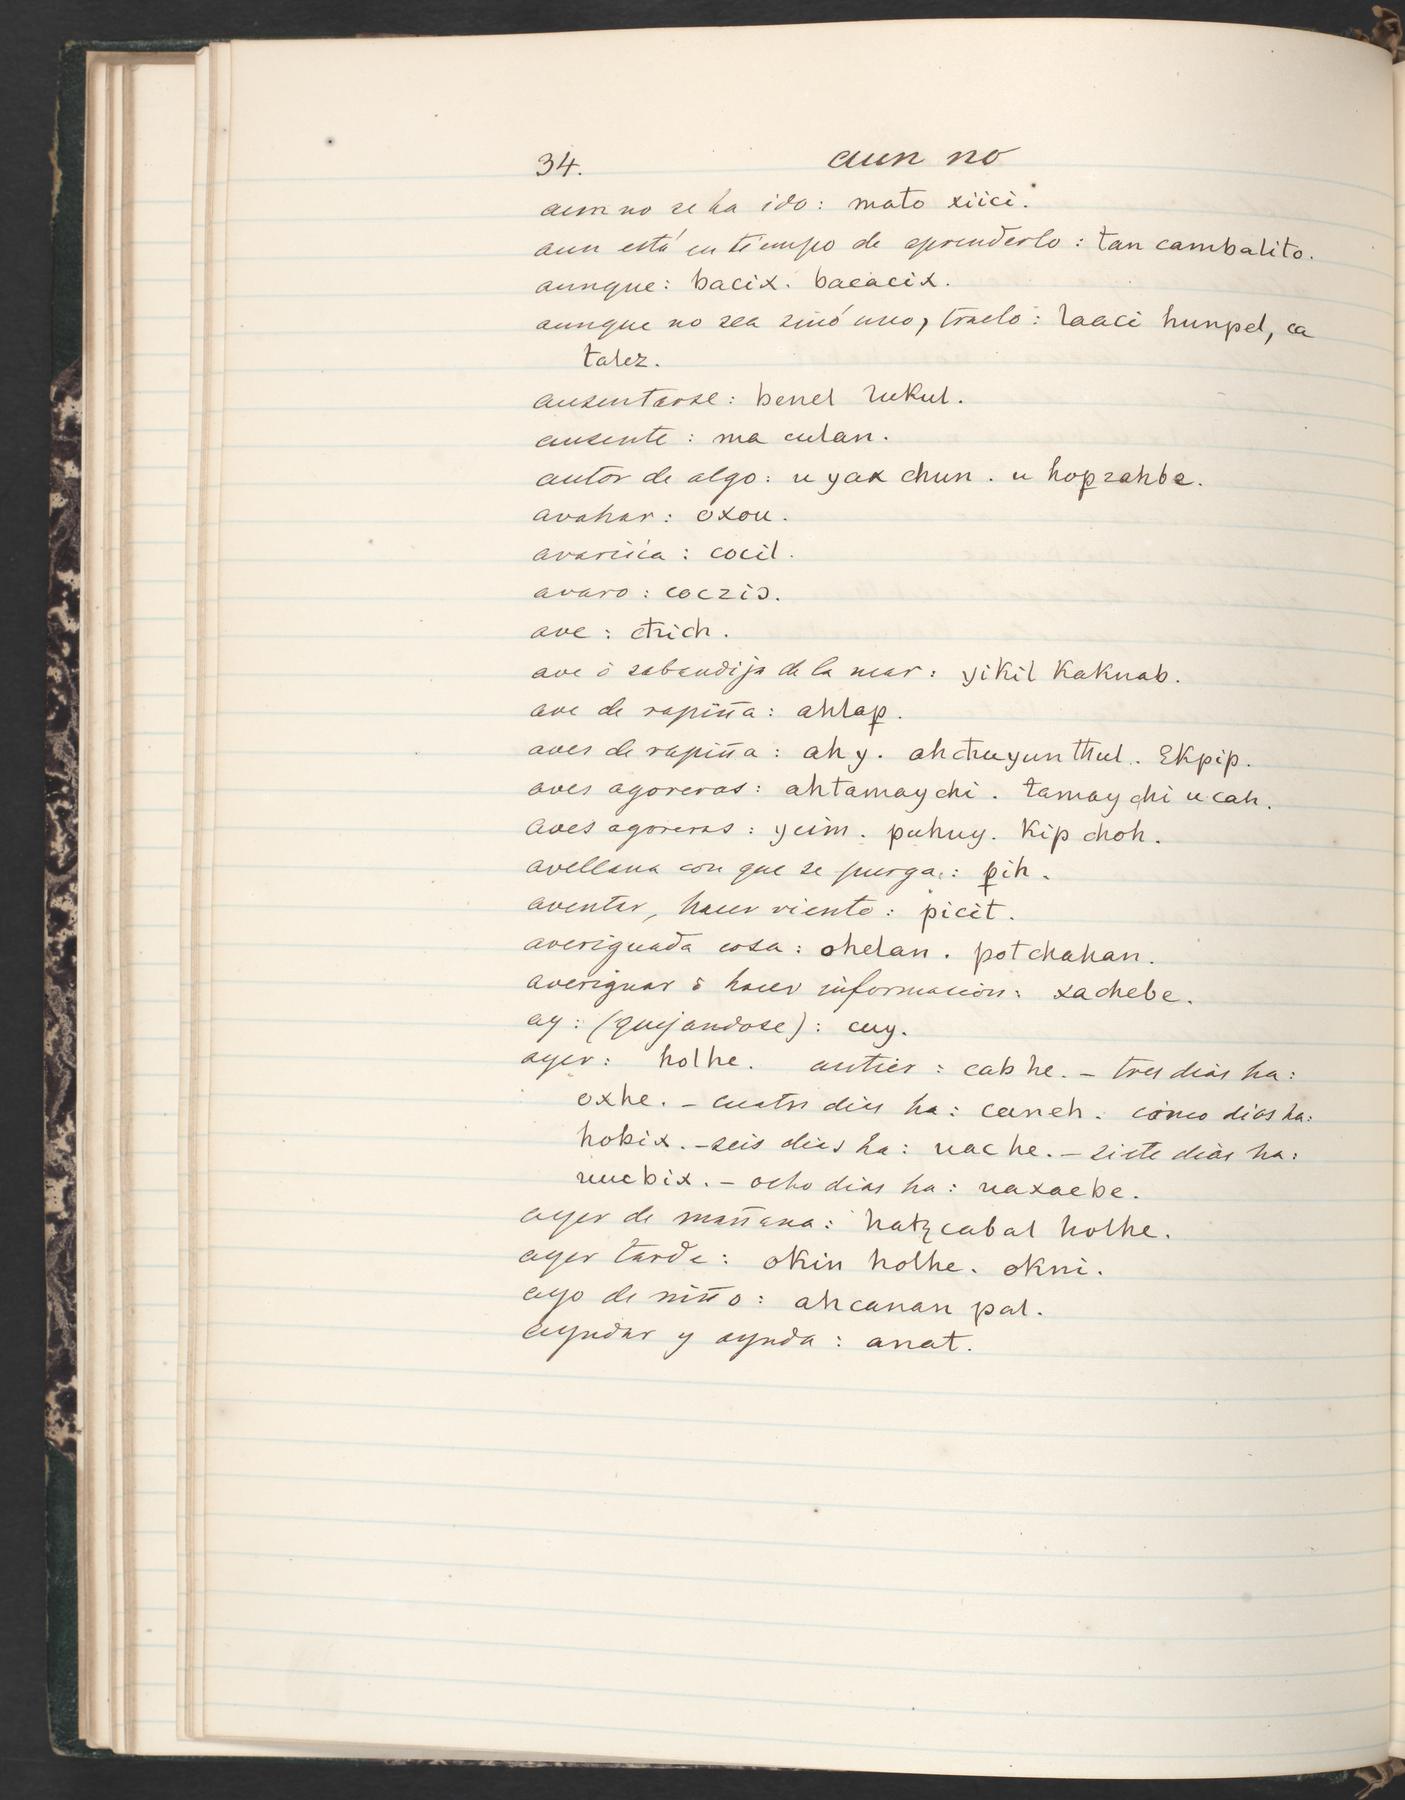 34. aun no
aun no se ha ido: mato xiici.
aun está en tiempo de aprenderlo: tan cambalito.
aunque: bacix. bacacix.
aunque no sea sinó uno, traelo: laaci hunpel, ca
talez.
ausentarse: benel lukul.
ausente: ma culan.
autor de algo: u yax chun. u hop̱zahbe.
avahar: oxou.
avaricia: cocil.
avaro: coczis.
ave: cħich.
ave ó sabandija de la mar: yikil kaknab.
ave de rapiña: ahlap̱.
aves de rapiña: ah y. ahcħuyun tħul. Ekpip.
aves agoreras: ahtamaychi. tamaychi ucah.
aves agoreras: ycim. puhuy. kip choh.
avellana con que se purga: p̱ih.
aventar, hacer viento: picit.
averiguada cosa: ohelan. potchahan.
averiguar ó hacer informacion: xachebe.
ay: (quejandose): cuy.
ayer: holhe. antier: cabhe. – tres dias ha:
oxhe. – cuatro dias ha: caneh. cinco dias ha:
hobix. – seis dias ha: uac he. – siete dias ha:
uucbix. – ocho dias ha: uaxacbe.
ayer de mañana: hatzcabal holhe.
ayer tarde: okin holhe. okni.
ayo de niño: ahcanan pal.
ayudar y ayuda: anat.